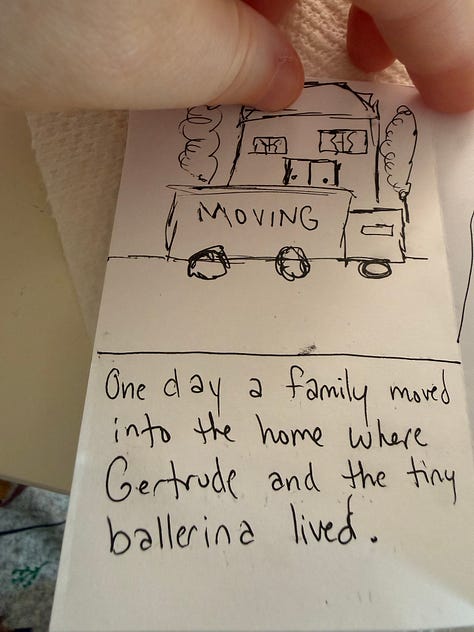 MOVING
One day a family moved
into the home where
Gertrude and the tiny
ballerina lived.